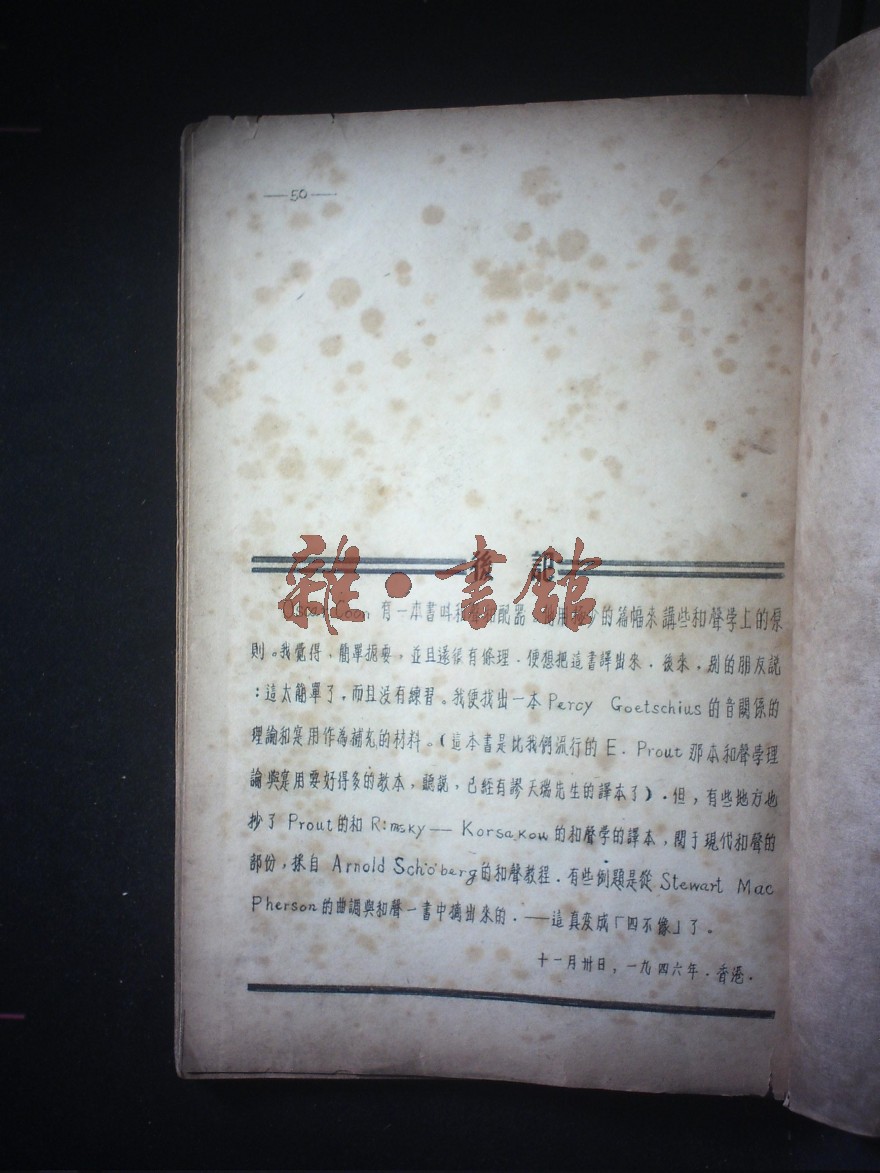 —50—
後 記
雜·書館
Oscar Coon 有一本書叫和聲與配器。他用極少的篇幅來講些和聲学上的原
則。我覺得，簡單扼要，並且還很有條理．便想把這書譯出來．後來．别的朋友説
：這太簡單了．而且没有練習。我便找出一本 Percy Goetschius 的音關係的
理論和寔用作為補充的材料。（這本書是比我們流行的 E. Prout 那本和聲學理
論與寔用要好得多的教本，聽説，已經有謬天瑞先生的譯本了）．但，有些地方也
抄了 Prout 的和 Rimsky — Korsakow 的和聲学的譯本，関于現代和聲的
部份，採自 Arnold Schöberg 的和聲教程．有些例題是從 Stewart Mac
Pherson 的曲調與和聲一書中摘出來的．——這真变成「四不像」了。
十一月卅日，一九四六年．香港．